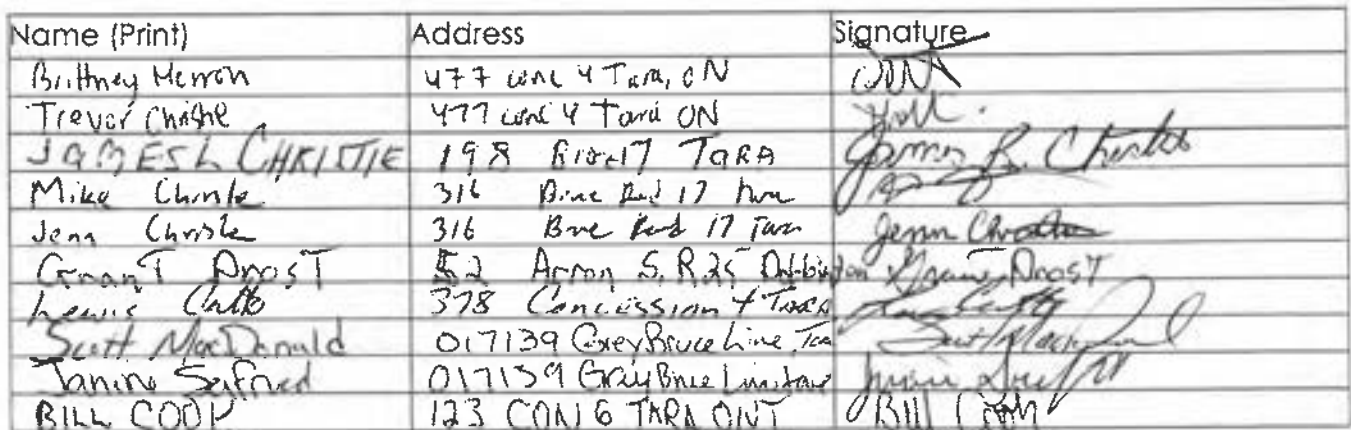 Name (Print) Address Signature
Brittney Merron 477 conc 4 Tara, ON
Trevor Christie 477 conc 4 Tara ON
JAMES L CHRISTIE 198 17 TARA James R. Christie
Mike Christie 316 Bruce Rd 17 Tara
Jenn Christie 316 Bruce Rd 17 Tara Jenn Christie
Grant Drost 52 Arran S.R 25 Grant Drost
Lewis 378 Concession 4 TARA
Scott MacDonald 017139 Grey Bruce Line, Tara Scott MacDonald
Janine Seifried 017139 Grey Bruce Line Tara
BILL COOK 123 CON 6 TARA ONT Bill Cook